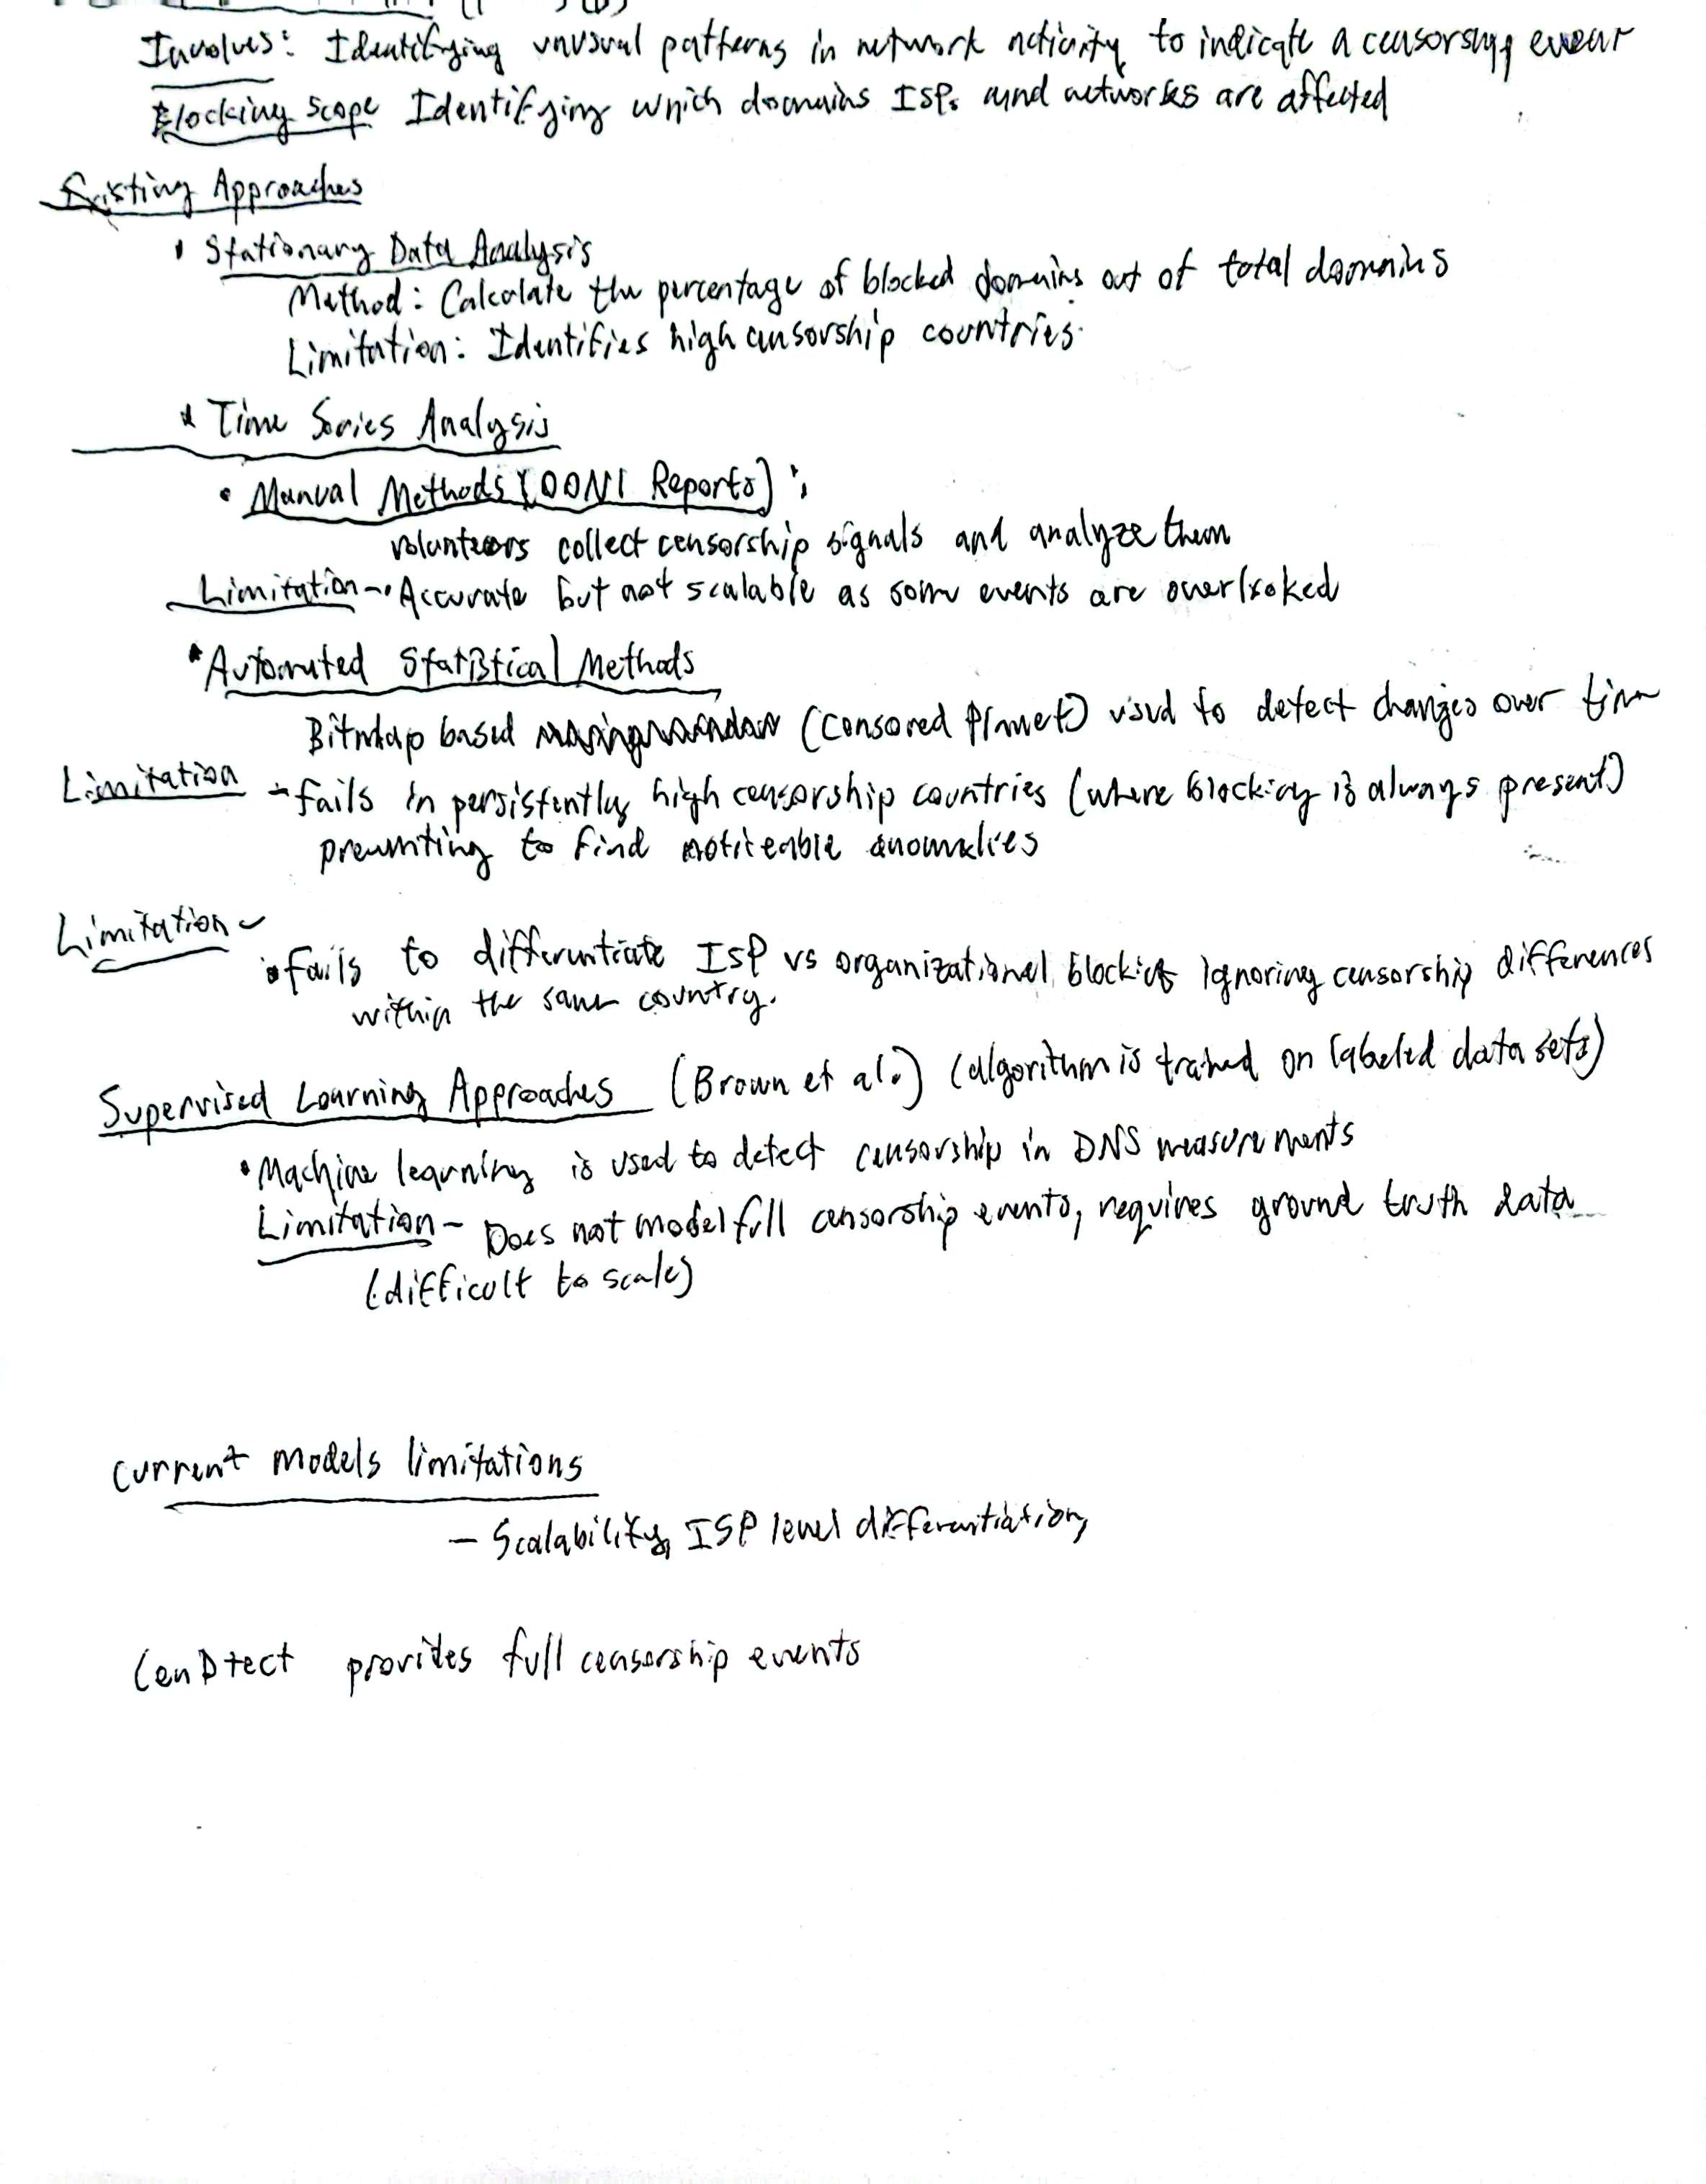 Involves: Identifying unusual patterns in network activity to indicate a censorship
Blocking scope Identifying which domains ISPs and networks are affected
Existing Approaches
• Stationary Data Analysis
Method: Calculate the percentage of blocked domains out of total domains
Limitation: Identifies high censorship countries.
* Time Series Analysis
• Manual Methods (OONI Reports):
volunteers collect censorship signals and analyze them
Limitation - Accurate but not scalable as some events are overlooked
* Automated Statistical Methods
Bitmap based (Censored Planet) used to detect changes over time
Limitation - fails in persistently high censorship countries (where blocking is always present)
to find noticeable anomalies
Limitation -
• fails to differentiate ISP vs organizational ignoring censorship differences
within the same country.
Supervised Learning Approaches (Brown et al.) (algorithm is trained on labeled data sets)
• Machine learning is used to detect censorship in DNS measurements
Limitation - Does not model full censorship events, requires ground truth data
(difficult to scale)
Current models limitations
— Scalability, ISP level differentiation,
CenDtect provides full censorship events